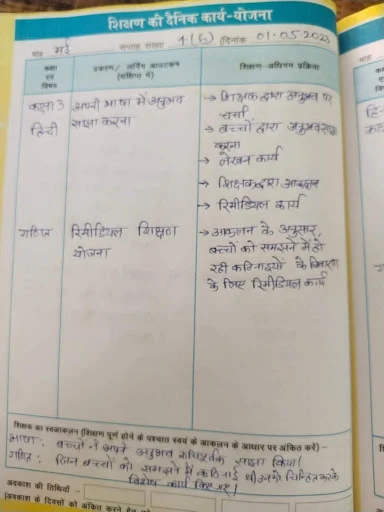 शिक्षण की दैनिक कार्य-योजना
माह मई सप्ताह संख्या 4(6) दिनांक 01.05.2023
कक्षा एवं विषय
प्रकरण/ लर्निंग आउटकम (संक्षिप्त में)
शिक्षण-अधिगम प्रक्रिया
कक्षा 3
हिंदी
अपनी भाषा में अनुभव
साझा करना
→ शिक्षक द्वारा अनुभव पर
चर्चा
→ बच्चों द्वारा अनुभव साझा
करना
→ लेखन कार्य
→ शिक्षक द्वारा आकलन
→ रिमीडियल कार्य
गणित
रिमीडियल शिक्षण
योजना
→ आकलन के अनुसार,
बच्चों को समझने में हो
रही कठिनाइयों के निवारण
के लिए रिमीडियल कार्य
शिक्षक का स्वआकलन (शिक्षण पूर्ण होने के पश्चात स्वयं के आकलन के आधार पर अंकित करें) –
भाषा: बच्चों ने अपने अनुभव रुचिपूर्वक साझा किया।
गणित: जिन बच्चों को समझने में कठिनाई थी उनको चिन्हित करके
विशेष कार्य किए गए।
अवकाश की तिथियाँ –
(अवकाश के दिवसों को अंकित करने हेतु